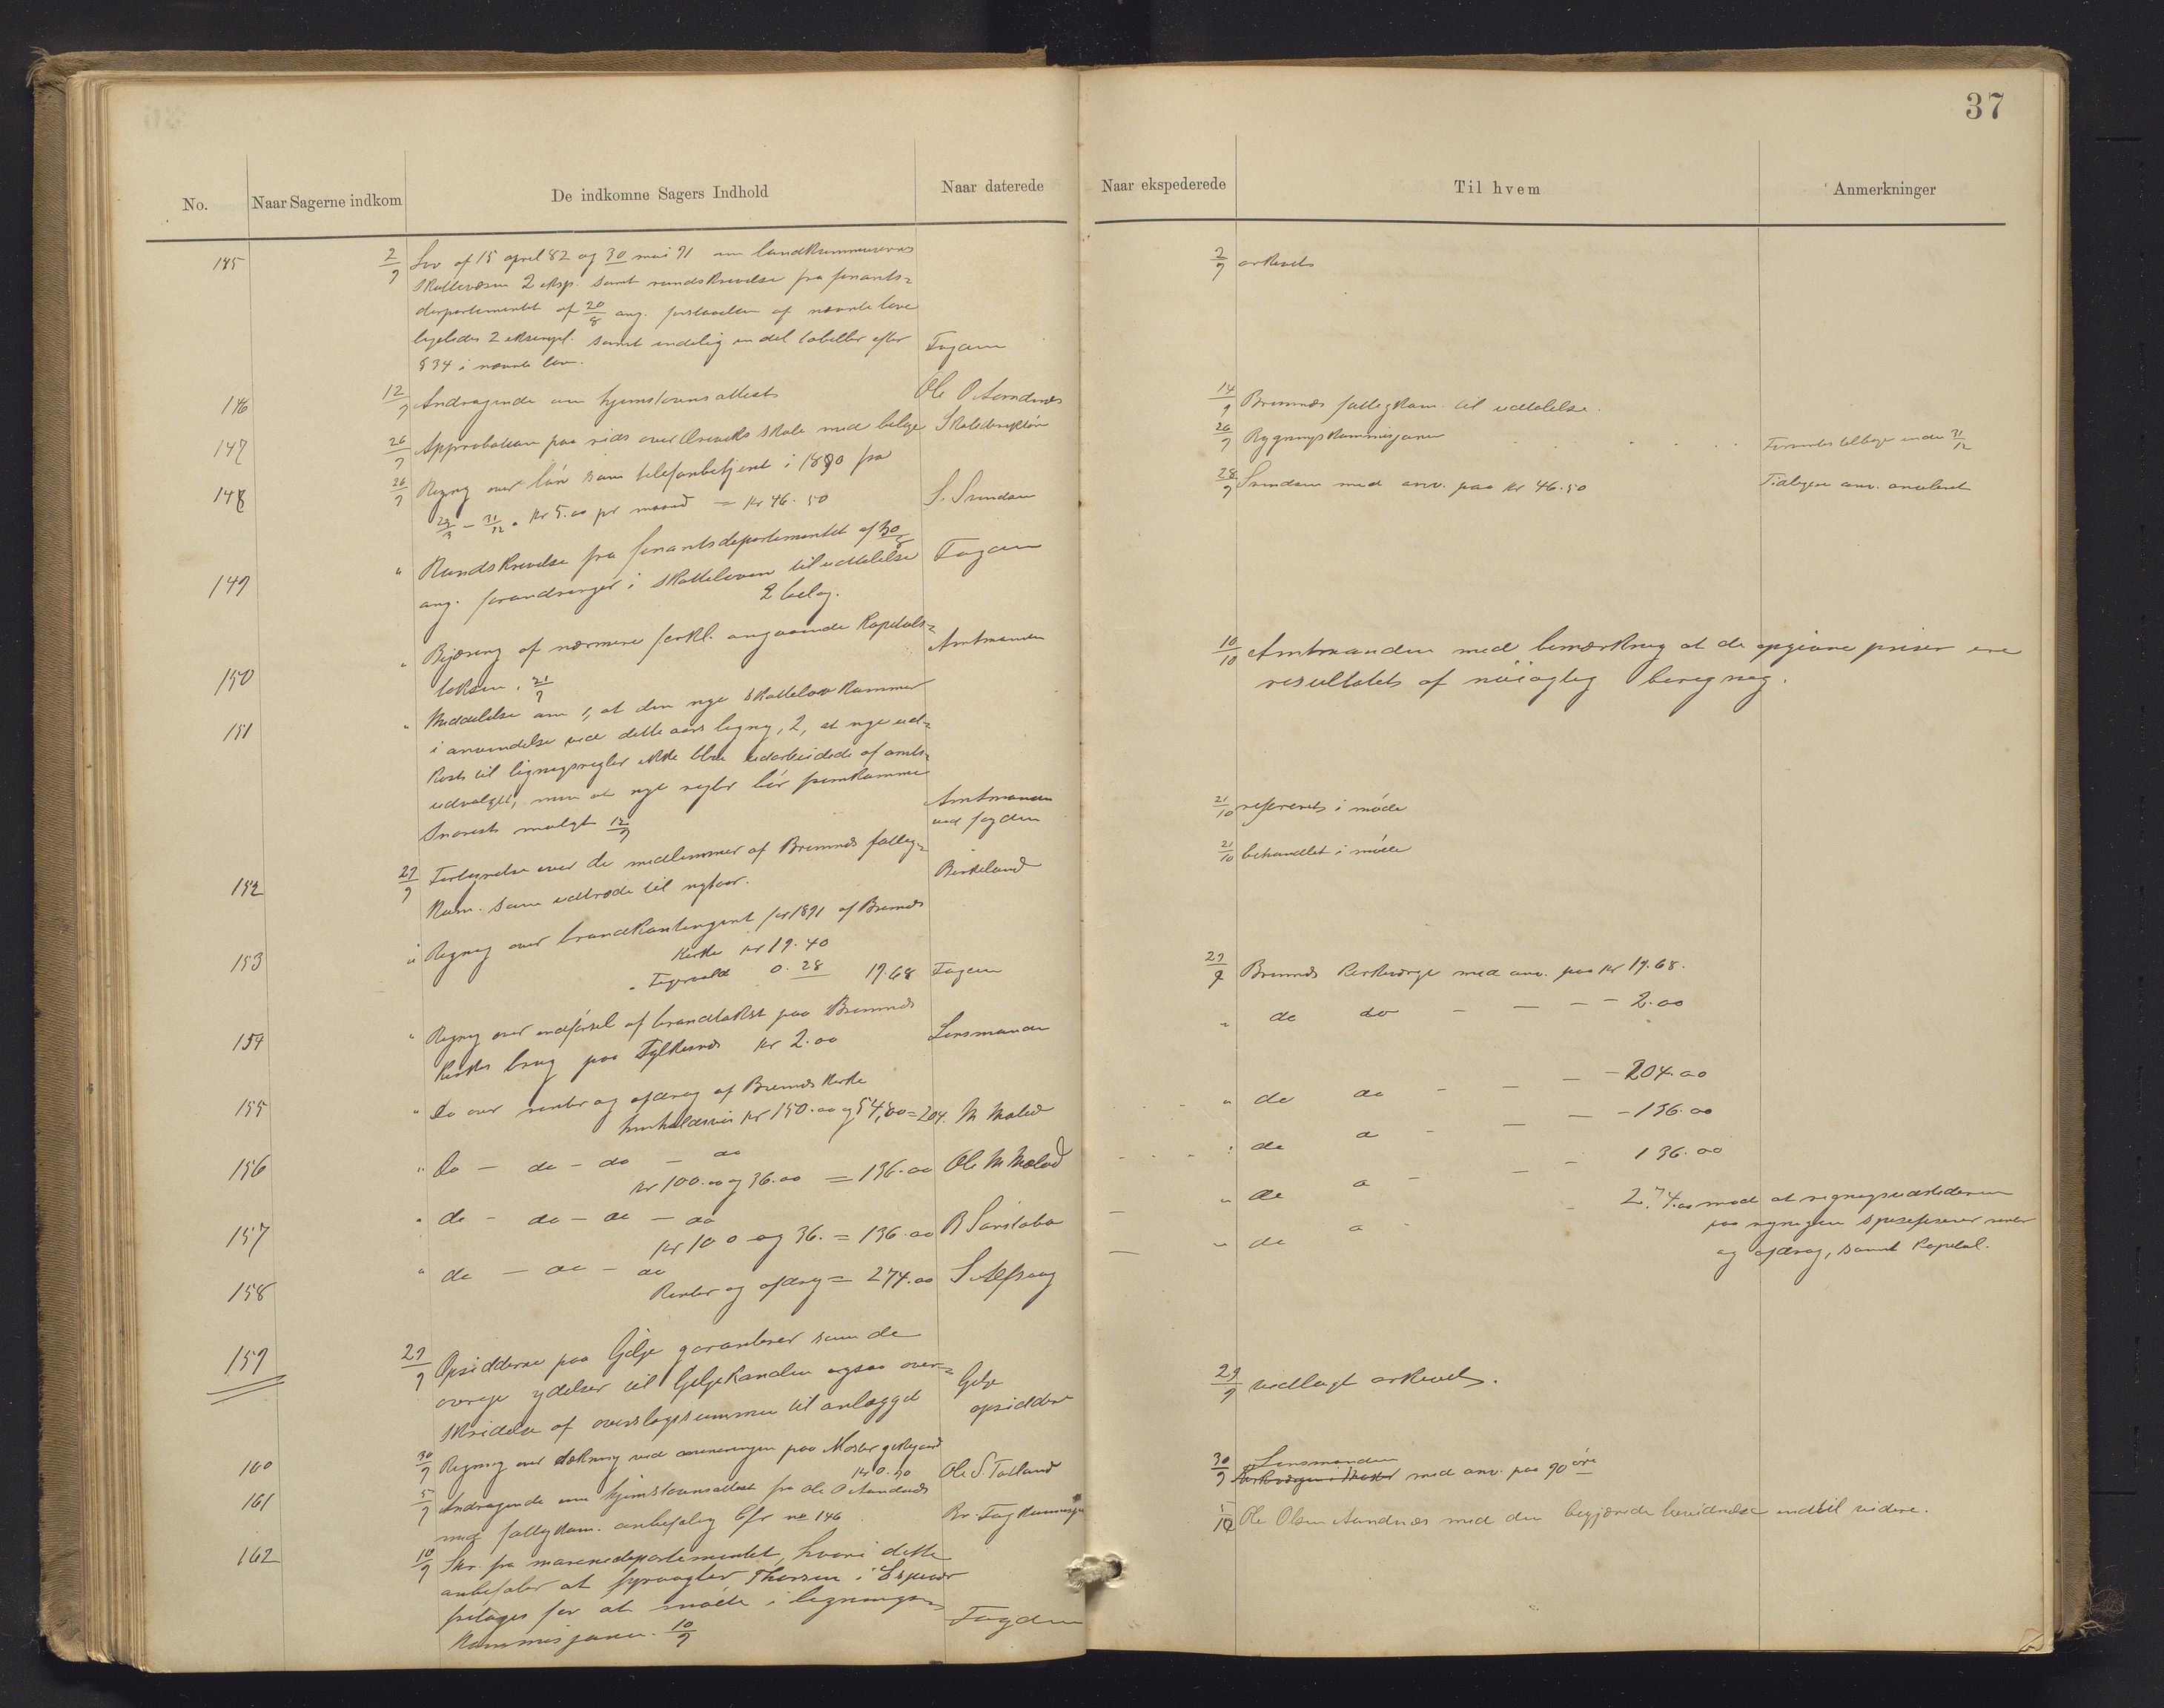 37
No. Naar Sagerne indkom De indkomne Sagers Indhold Naar daterede
Naar ekspederede Til hvem Anmerkninger
145 2/9 Lov af 15 april 82 og 30 mai 91 om landkommunernes
skattevæsen 2 eksp. samt rundskrivelse fra finants-
departementet af 20/8 ang. forstaaelsen af nævnte love
ligeledes 2 eksempl. samt endelig en del tabeller efter
§ 34 i nævnte lov. Fogden
2/9 arkivet
146 12/9 Andragende om hjemstavnsattest Ole O Aandnæs
14/9 Bremnæs fattigkom. til udtalelse.
147 26/9 Approbation paa rids over skole med bilage Skoledirektøren
26/9 Bygningskommisjonen Forventes tilbage inden 31/12
148 26/9 Regng over løn som telefonbetjent i 1890 fra
29/3 - 31/12 a kr 5.00 pr maaned = kr 46.50 S. Svendsen
28/9 Svendsen med anv. paa kr 46.50 Tidligere anv. anuleret
149 " Rundskrivelse fra finantsdepartementet af 30/8
ang. forandringer i skatteloven til udtalelse Fogden
2 bilag.
150 " Begjæring af nærmere forkl. angaaende kapitals-
taksten. 21/9 Amtmanden
10/10 Amtmanden med bemærkning at de opgivne priser ere
resultatet af nøiagtig beregning.
151 " Meddelelse om 1, at den nye skattelov kommer
i anvendelse ved dette aars ligng, 2, at nye ud-
kast til ligningsregler ikke blir udarbeidede af amts-
udvalget, men at nye regler bør fremkomme
snarest muligt 12/9 Amtmanden
ved fogden
21/10 refereret i møde
152 29/9 Fortegnelse over de medlemmer af Bremnæs fattig-
kom. som udtræde til nytaar. Birkeland
21/10 behandlet i møde
153 " Regng over brandkontingent for 1891 af Bremnæs
kirke kr 19.40
" 0.28 19.68 Fogden
29/9 Bremnæs kirkeverge med anv. paa kr 19.68.
154 " Regng over indførsel af brandtakst paa Bremnæs
kirkes brug paa Fylkesnæs kr 2.00 Lensmanden
" do do - - - 2.00
155 " Do over renter og afdrag af Bremnæs kirke
henholdsvis kr 150.00 og 54,00 = 204. M Meland
" do do - - - 204.00
156 " Do - do - do - do
kr 100.00 og 36.00 = 136.00 Ole M Meland
" do do - - - 136.00
157 " do - do - do - do
kr 100 og 36. = 136.00
" do do - - - 136.00
158 " do - do - do
Renter og afdrag = 274.00 S Alfsvaag
" do do - 274.00 mod at regningsudstederen
paa regningen spesifiserer renter
og afdrag, samt kapital.
159 29/9 Opsidderne paa Gilje garanterer som de
øvrige ydelser til Giljekanalen ogsaa over-
skridelse af overslagssummen til anlægget Gilje
opsiddere
29/9 vedlagt arkivet.
160 30/9 Regning over dækning ved paa Moster
kr 0.90 Ole S. Totland
30/9 Lensmanden
med anv. paa 90 øre
161 5/9 Andragende om hjemstavnsattest fra Ole O Aandnæs
med fattigkom. anbefaling Cfr no 146 Br. Fatkommisjon
5/10 Ole Olsen Aandnæs med den begjærede bevidnelse indtil videre.
162 10/9 Skr. fra marinedepartementet, hvori dette
anbefaler at fyrvogter Thorsen i Espevær
fritages for at møde i lignings-
kommisjonen. 10/9 Fogden